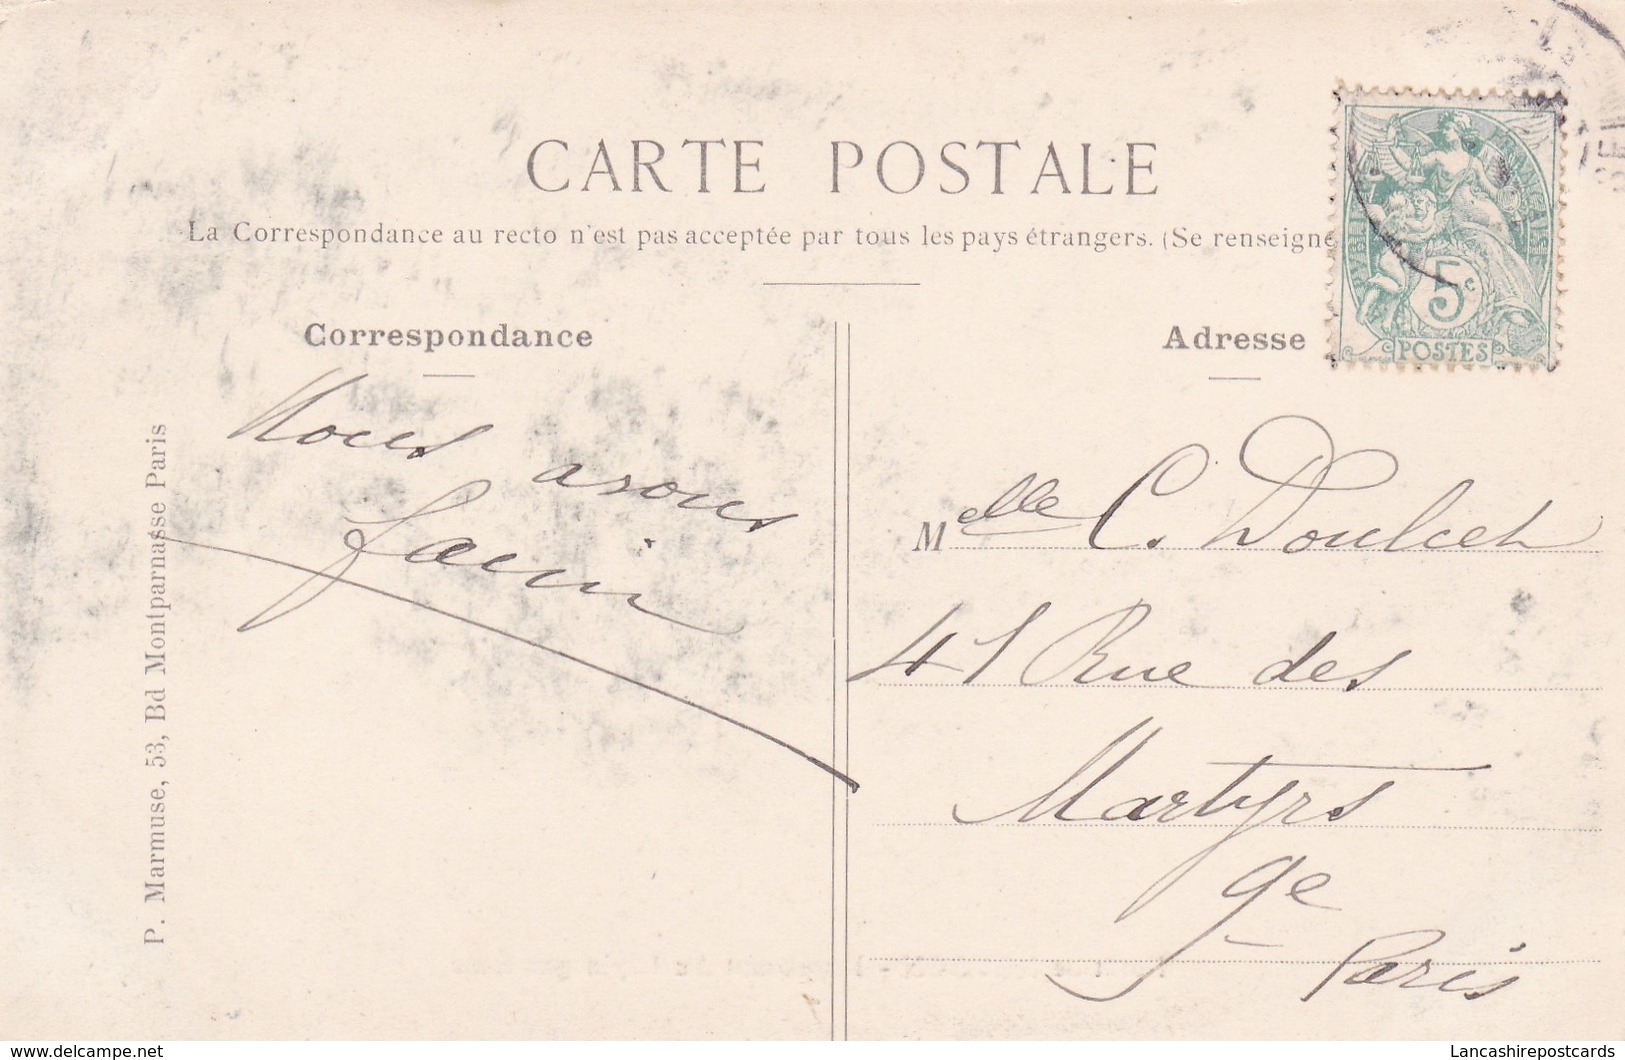 CARTE POSTALE
La Correspondance au recto n'est pas acceptée par tous les pays étrangers. (Se renseigne
Correspondance
Nous avons
faim
P. Marmuse, 53, Bd Montparnasse Paris
Adresse
5c
POSTES
Melle C. Doulcet
41 Rue des
Martyrs
9e
Paris
www.delcampe.net
Lancashirepostcards